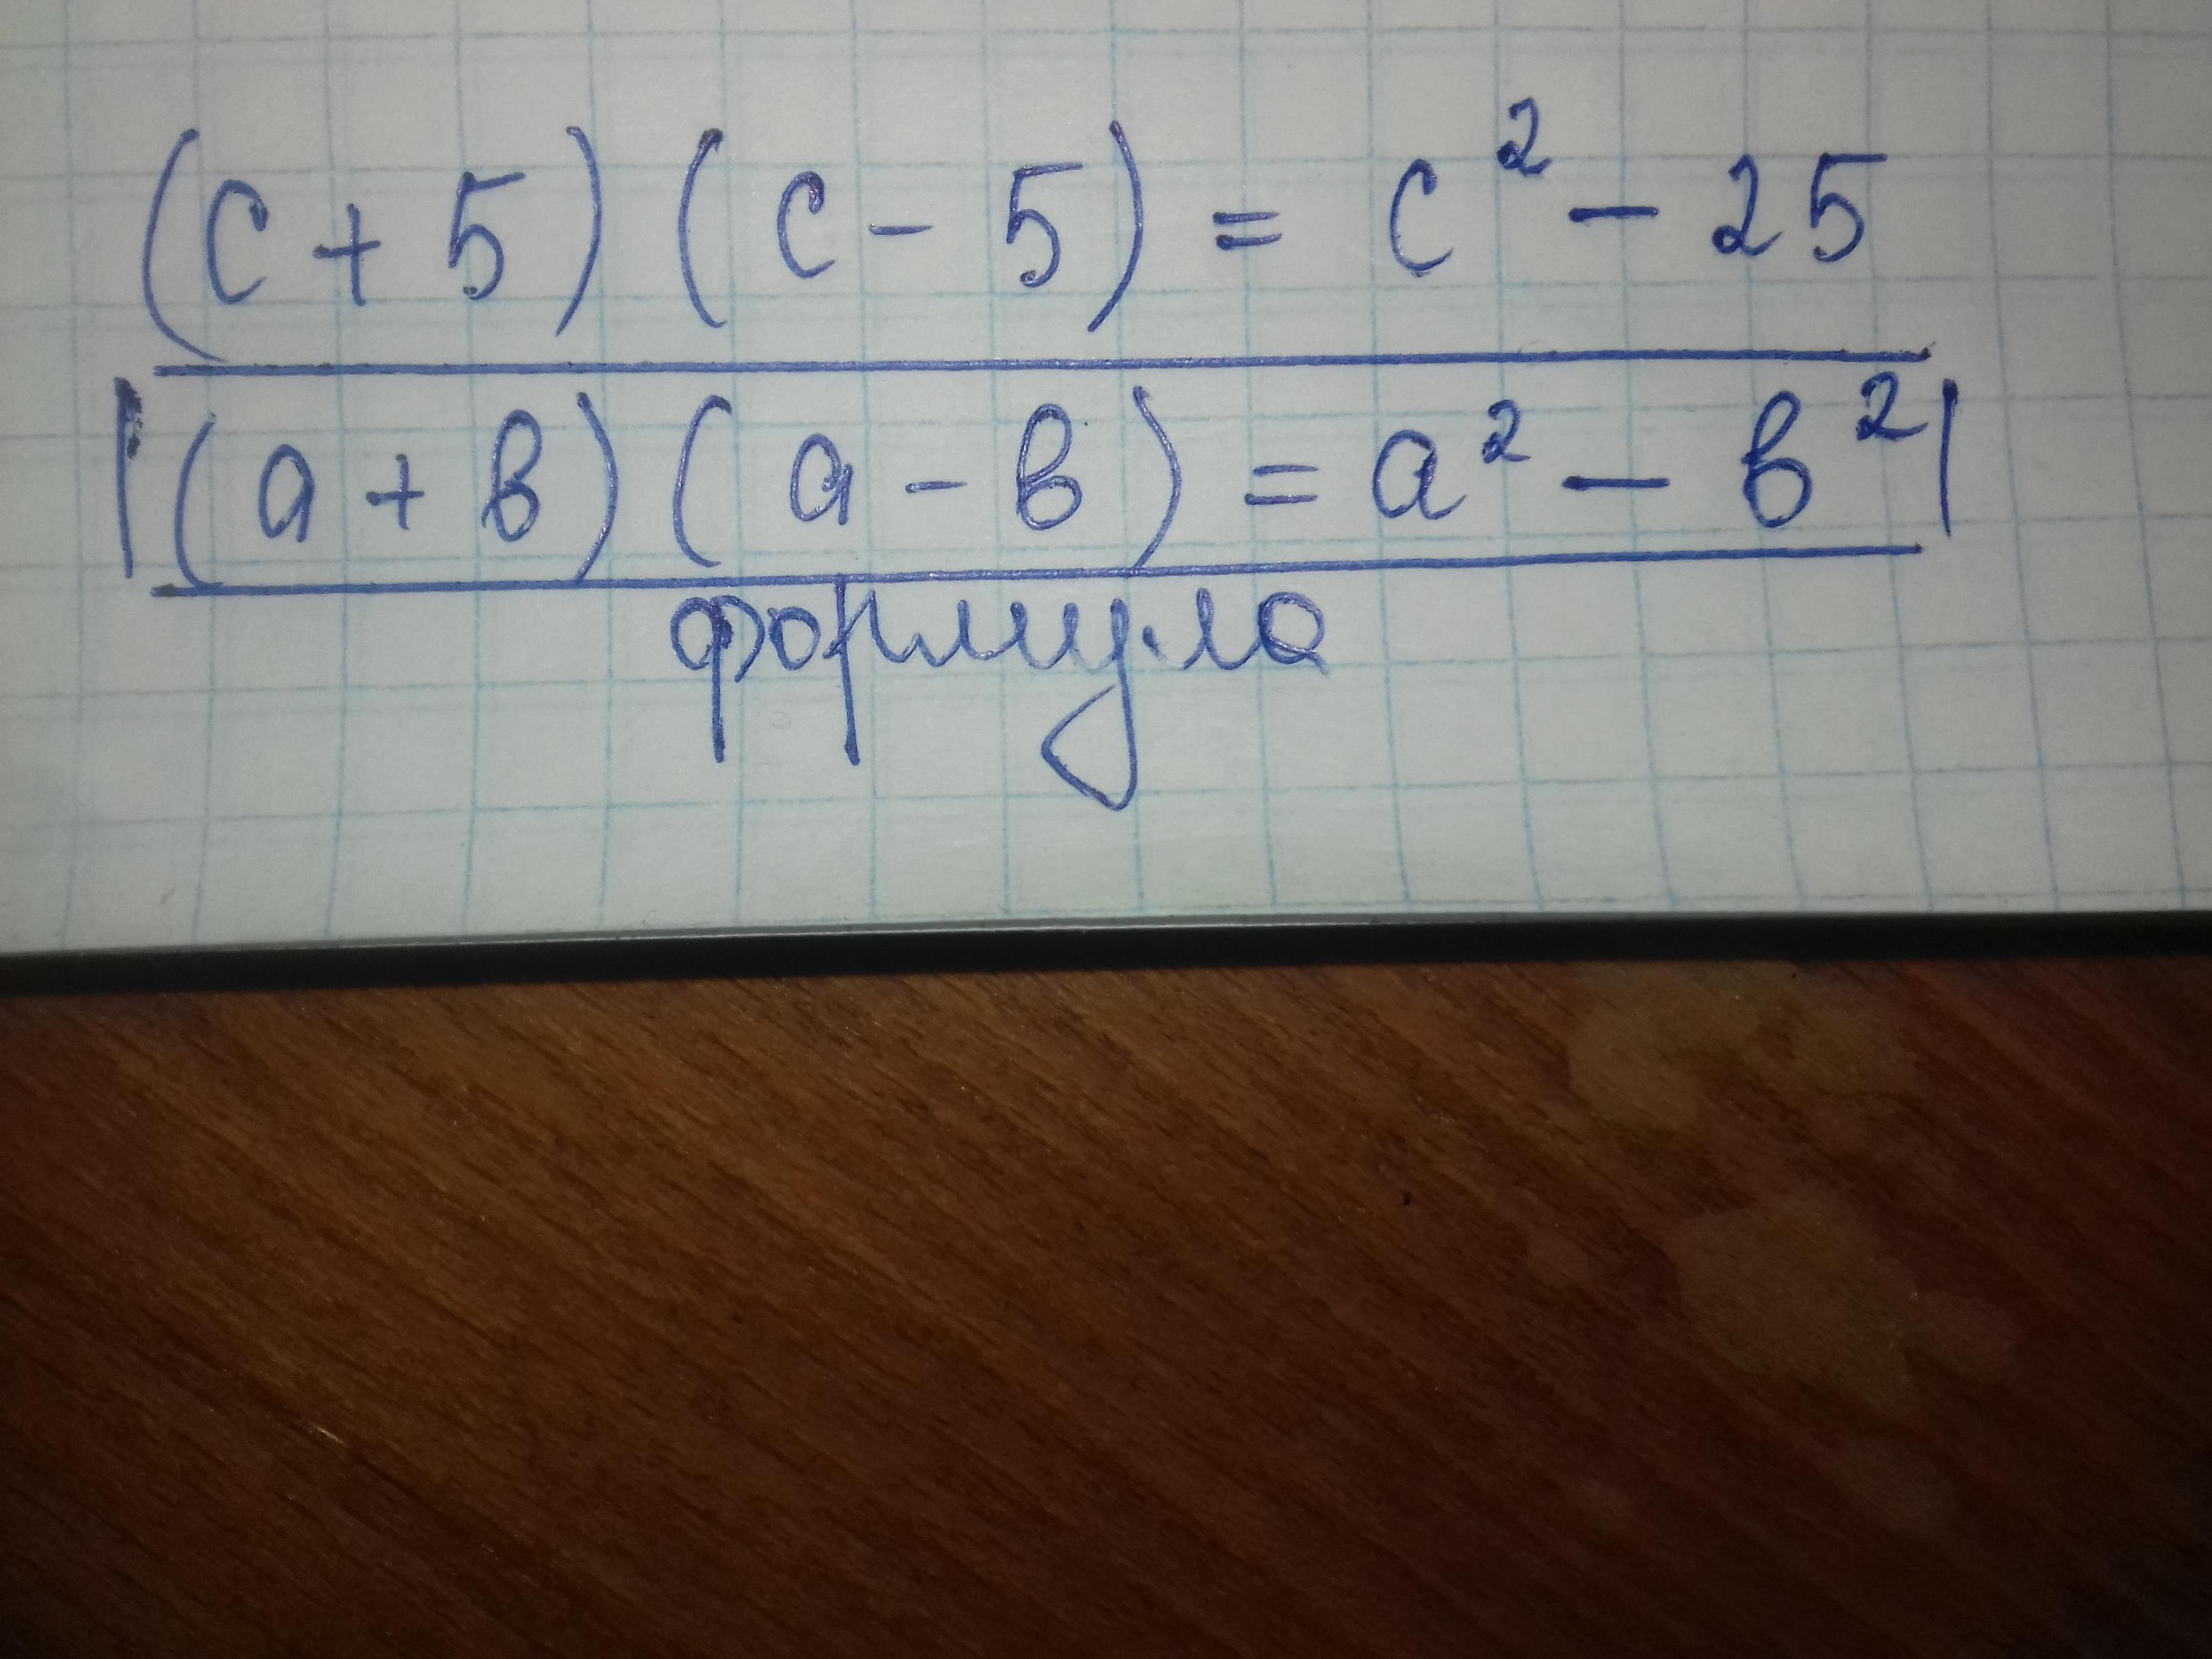 (c + 5) (c - 5) = c² - 25
(a + b) (a - b) = a² - b²
формула